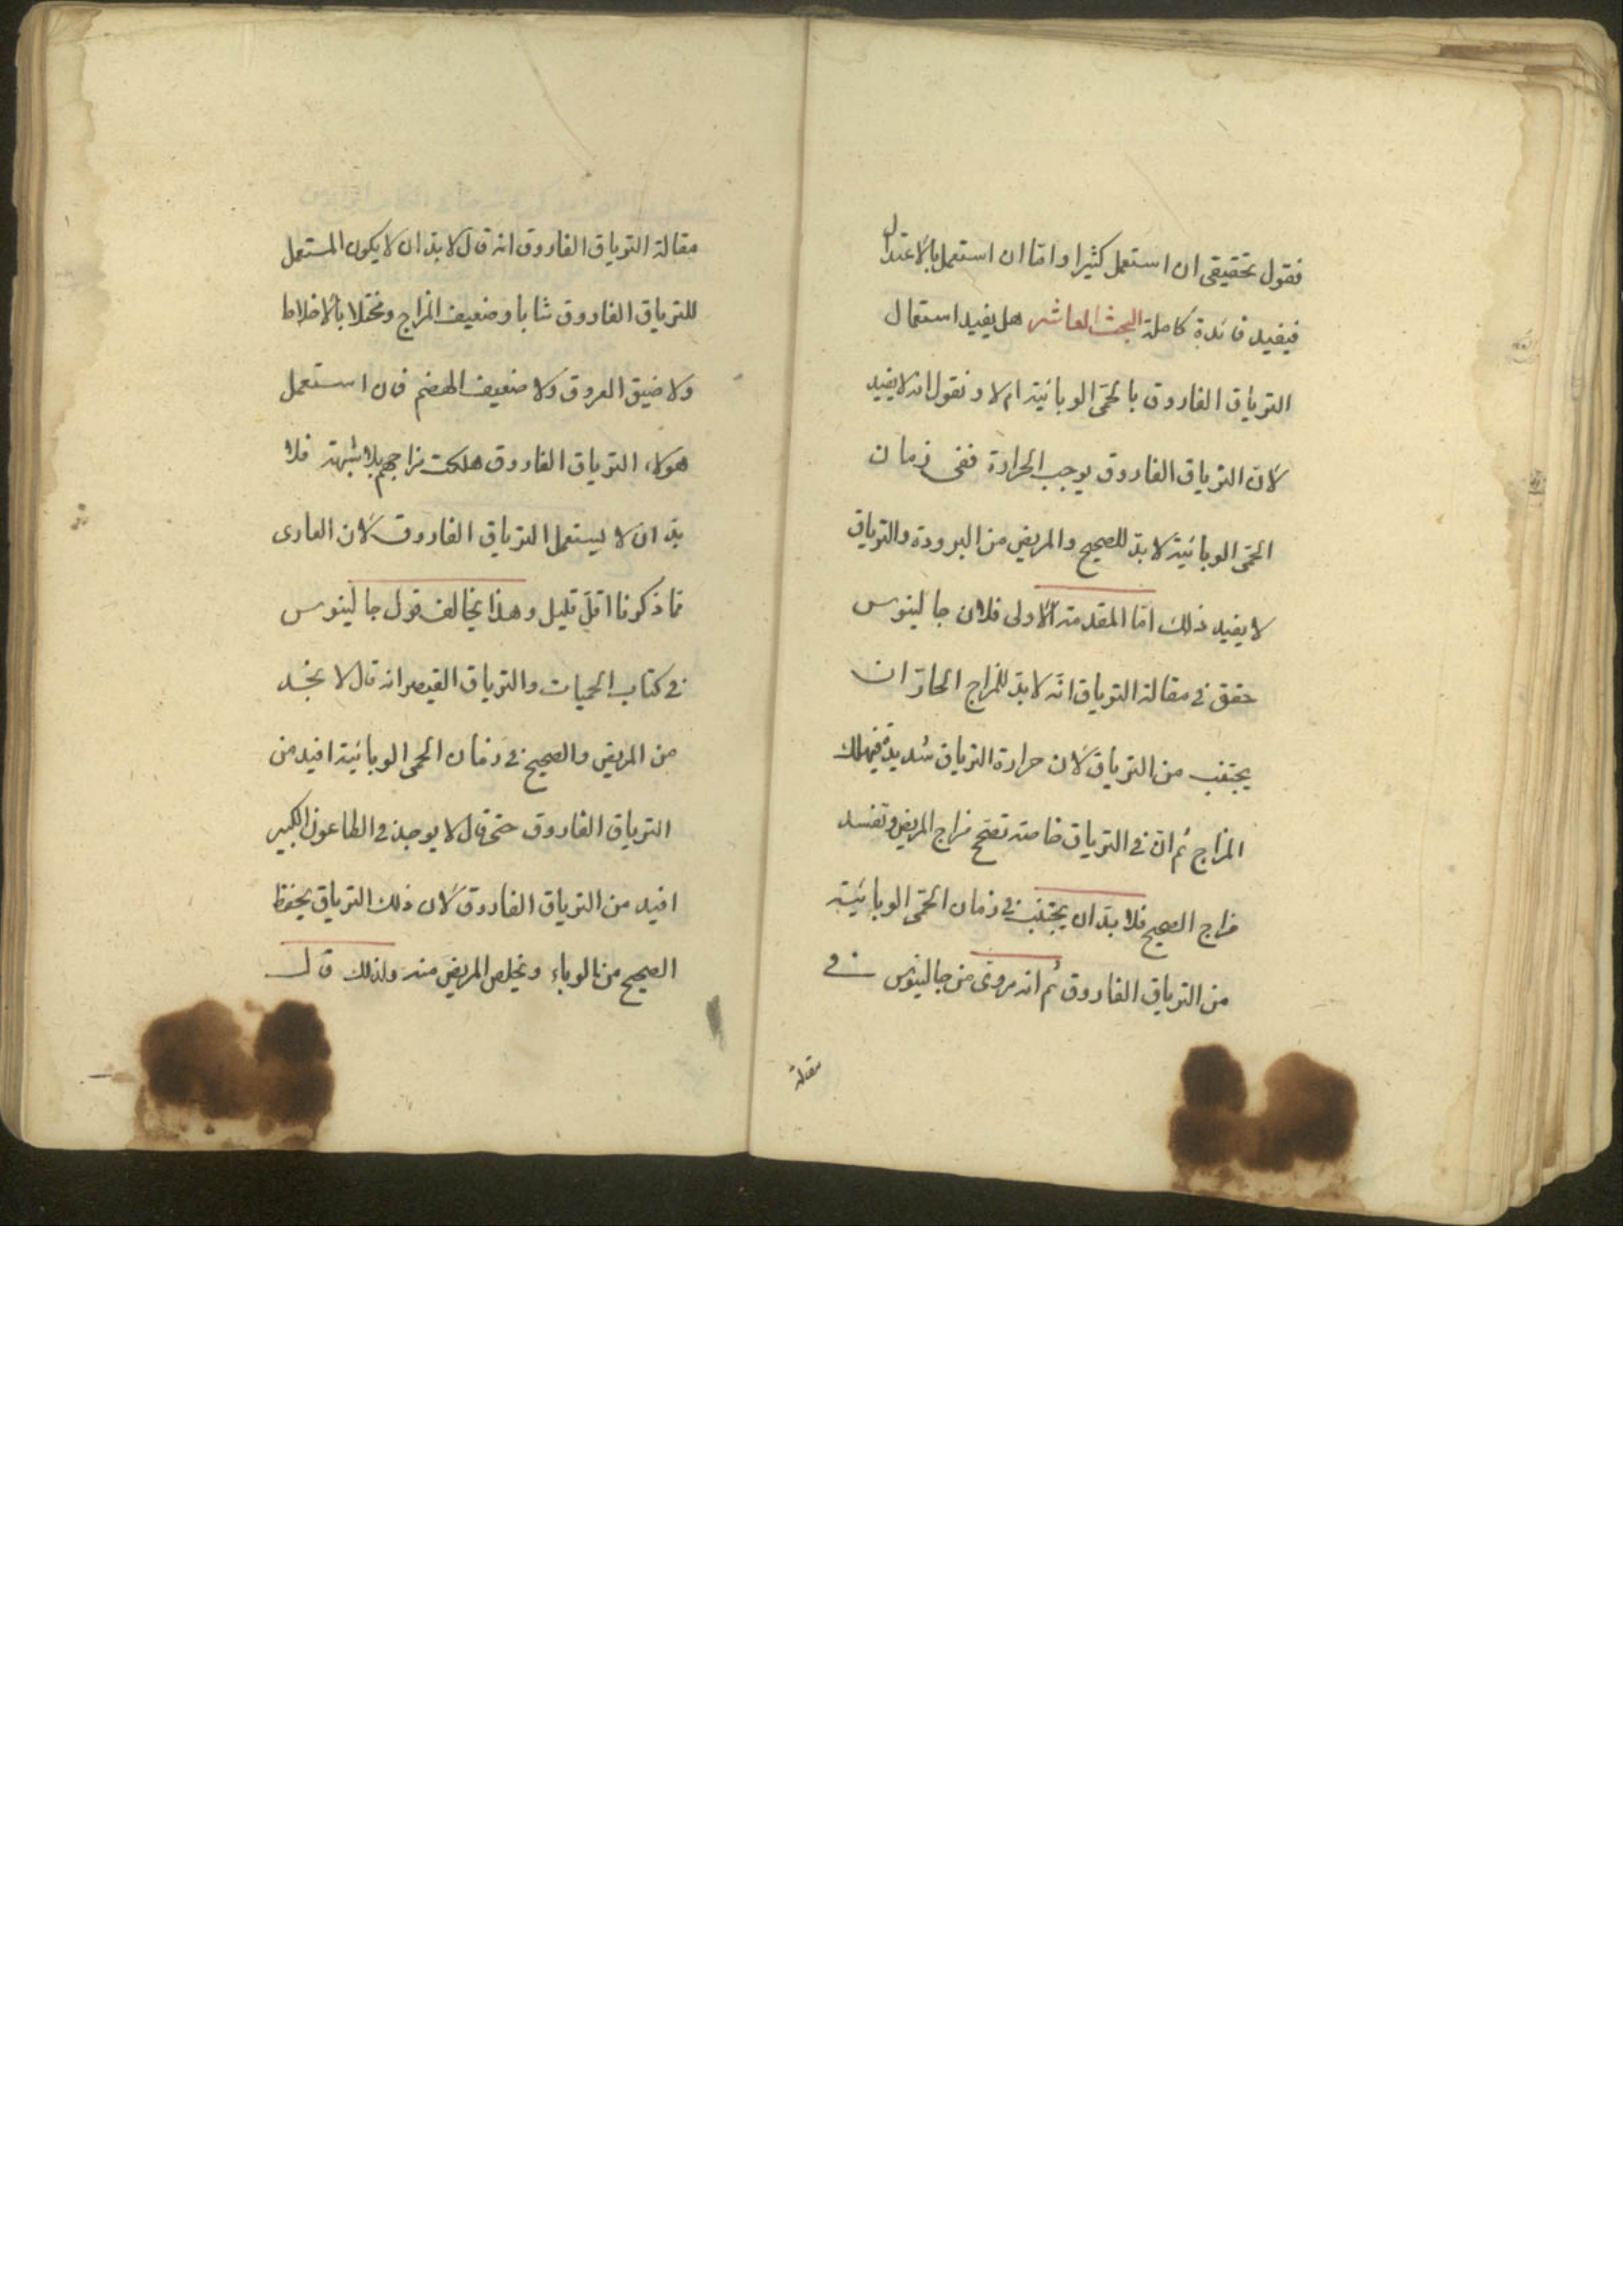 فقول تحقيقى ان استعمل كثيرا واما ان استعمل بالاعتدال
فيفيد فائدة كاملة البحث العاشر هل يفيد استعمال
الترياق الفاروق بالحمّى الوبائية ام لا ونقول انه لا يفيد
لانّ الترياق الفاروق يوجب الحرارة ففى زمان
الحمّى الوبائية لا بدّ للصحيح والمريض من البرودة والترياق
لا يفيد ذلك امّا المقدمة الاولى فلان جالينوس
حقق فى مقالة الترياق انّه لا بدّ للمزاج الحارّ ان
يجتنب من الترياق لان حرارة الترياق شديدة فيهلك
المزاج ثم انّ فى الترياق خاصة تفتح مزاج المريض وتفسد
مزاج الصحيح فلا بدّ ان يجتنب فى زمان الحمّى الوبائية
من الترياق الفاروق ثم انه مروى من جالينوس فى
مقالة
مقالة الترياق الفاروق انه قال لا بدّ ان لا يكون المستعمل
للترياق الفاروق شابا وضعيف المزاج ومختلا بالاخلاط
ولا ضيق العروق ولا ضعيف الهضم فان استعمل
هؤلاء الترياق الفاروق هلكت مزاجهم بلا شبهة فلا
بدّ ان لا يستعمل الترياق الفاروق لان العارى
مما ذكرنا اقلّ قليل وهذا يخالف قول جالينوس
فى كتاب الحميات والترياق القيصر انه قال لا نجد
من المريض والصحيح فى زمان الحمى الوبائية افيد من
الترياق الفاروق حتى قال لا يوجد فى الطاعون الكبير
افيد من الترياق الفاروق لان ذلك الترياق يحفظ
الصحيح من الوباء ويخلص المريض منه ولذلك قال